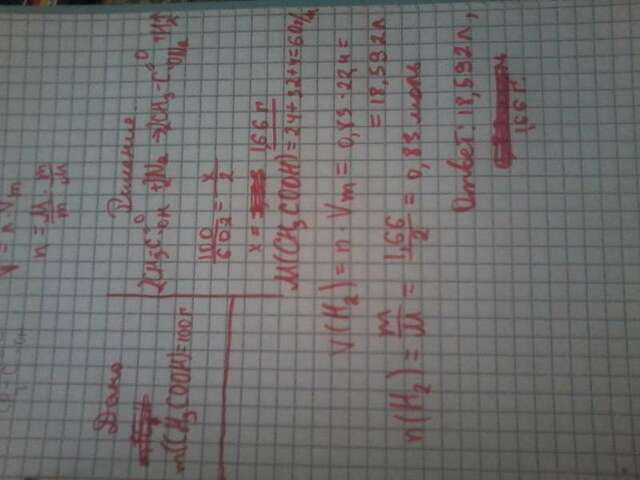 V = n · Vm
n = m/M
Дано
m(CH3COOH)=100г
Решение
2CH3-C=O-OH + 2Na → 2CH3-C=O-ONa + H2
100/60·2 = x/2
x = 1,66 г
M(CH3COOH) = 24+32+4=60г/
V(H2) = n · Vm = 0,83 · 22,4 =
= 18,592л
n(H2) = m/M = 1,66/2 = 0,83 моль
Ответ: 18,592л,
1,66 г.